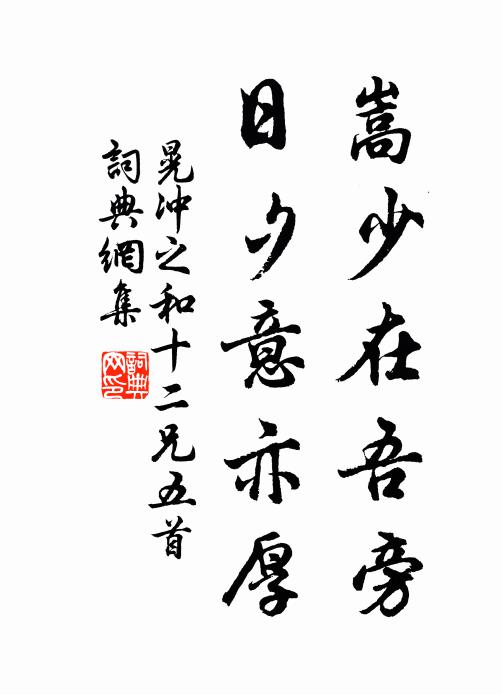 嵩少在吾旁
日夕意亦厚
晃冲之和十二兄五首
詞典網集
詞典
网印